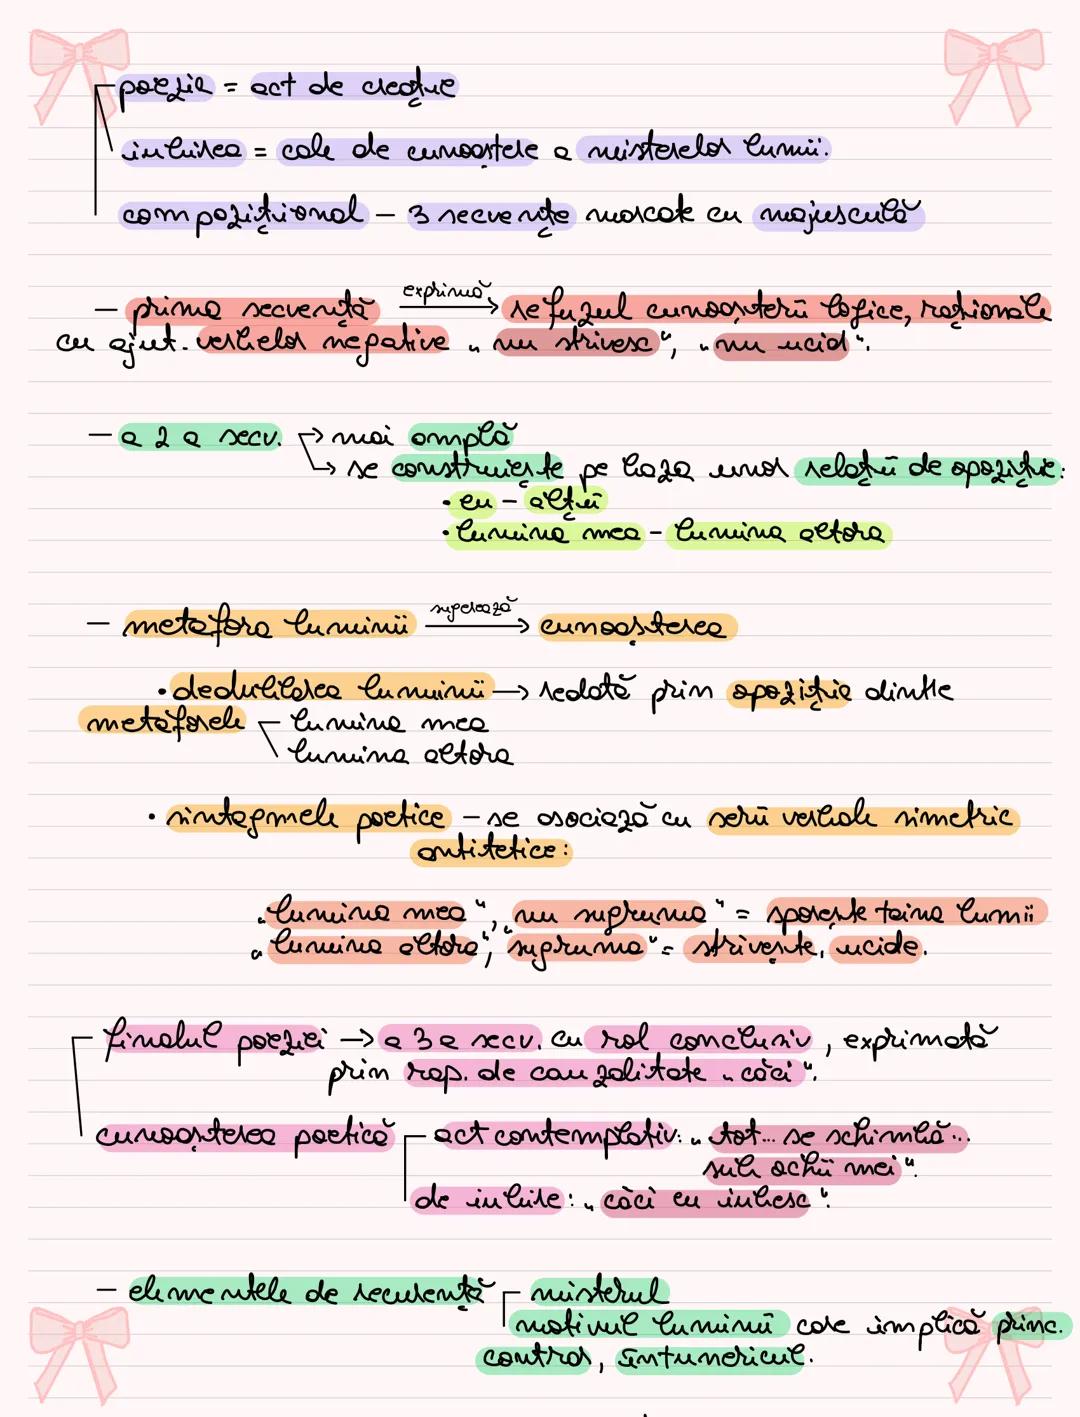 poezia = act de creație
iubirea = cale de cunoaștere a misterelor lumii.
compozițional - 3 secvențe marcate cu majusculă
- prima secvență exprimă → refuzul cunoașterii logice, raționale
cu ajut. verbelor negative „nu strivesc", „nu ucid".
- a 2 a secv. → mai amplă
→ se construiește pe baza unor relații de opoziție:
• eu - alții
• lumina mea - lumina altora
- metafora luminii sugerează → cunoașterea
• dedublarea luminii → redată prim opoziția dintre
metaforele lumina mea
lumina altora
• sintagmele poetice - se asociază cu serii verbale simetric
antitetice:
„lumina mea", „nu sugruma" = sporește taina lumii
„lumina altora", „sugruma" = strivește, ucide.
finalul poeziei → a 3 a secv. cu rol concluziv, exprimată
prin rap. de cauzalitate „căci".
cunoașterea poetică act contemplativ: „tot... se schimbă...
sub ochii mei".
de iubire: „căci eu iubesc".
- elementele de recurență misterul
motivul luminii care implică princ.
contrar, întunericul.